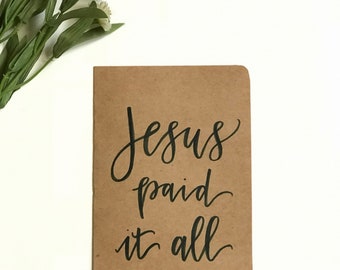 Jesus
paid
it all